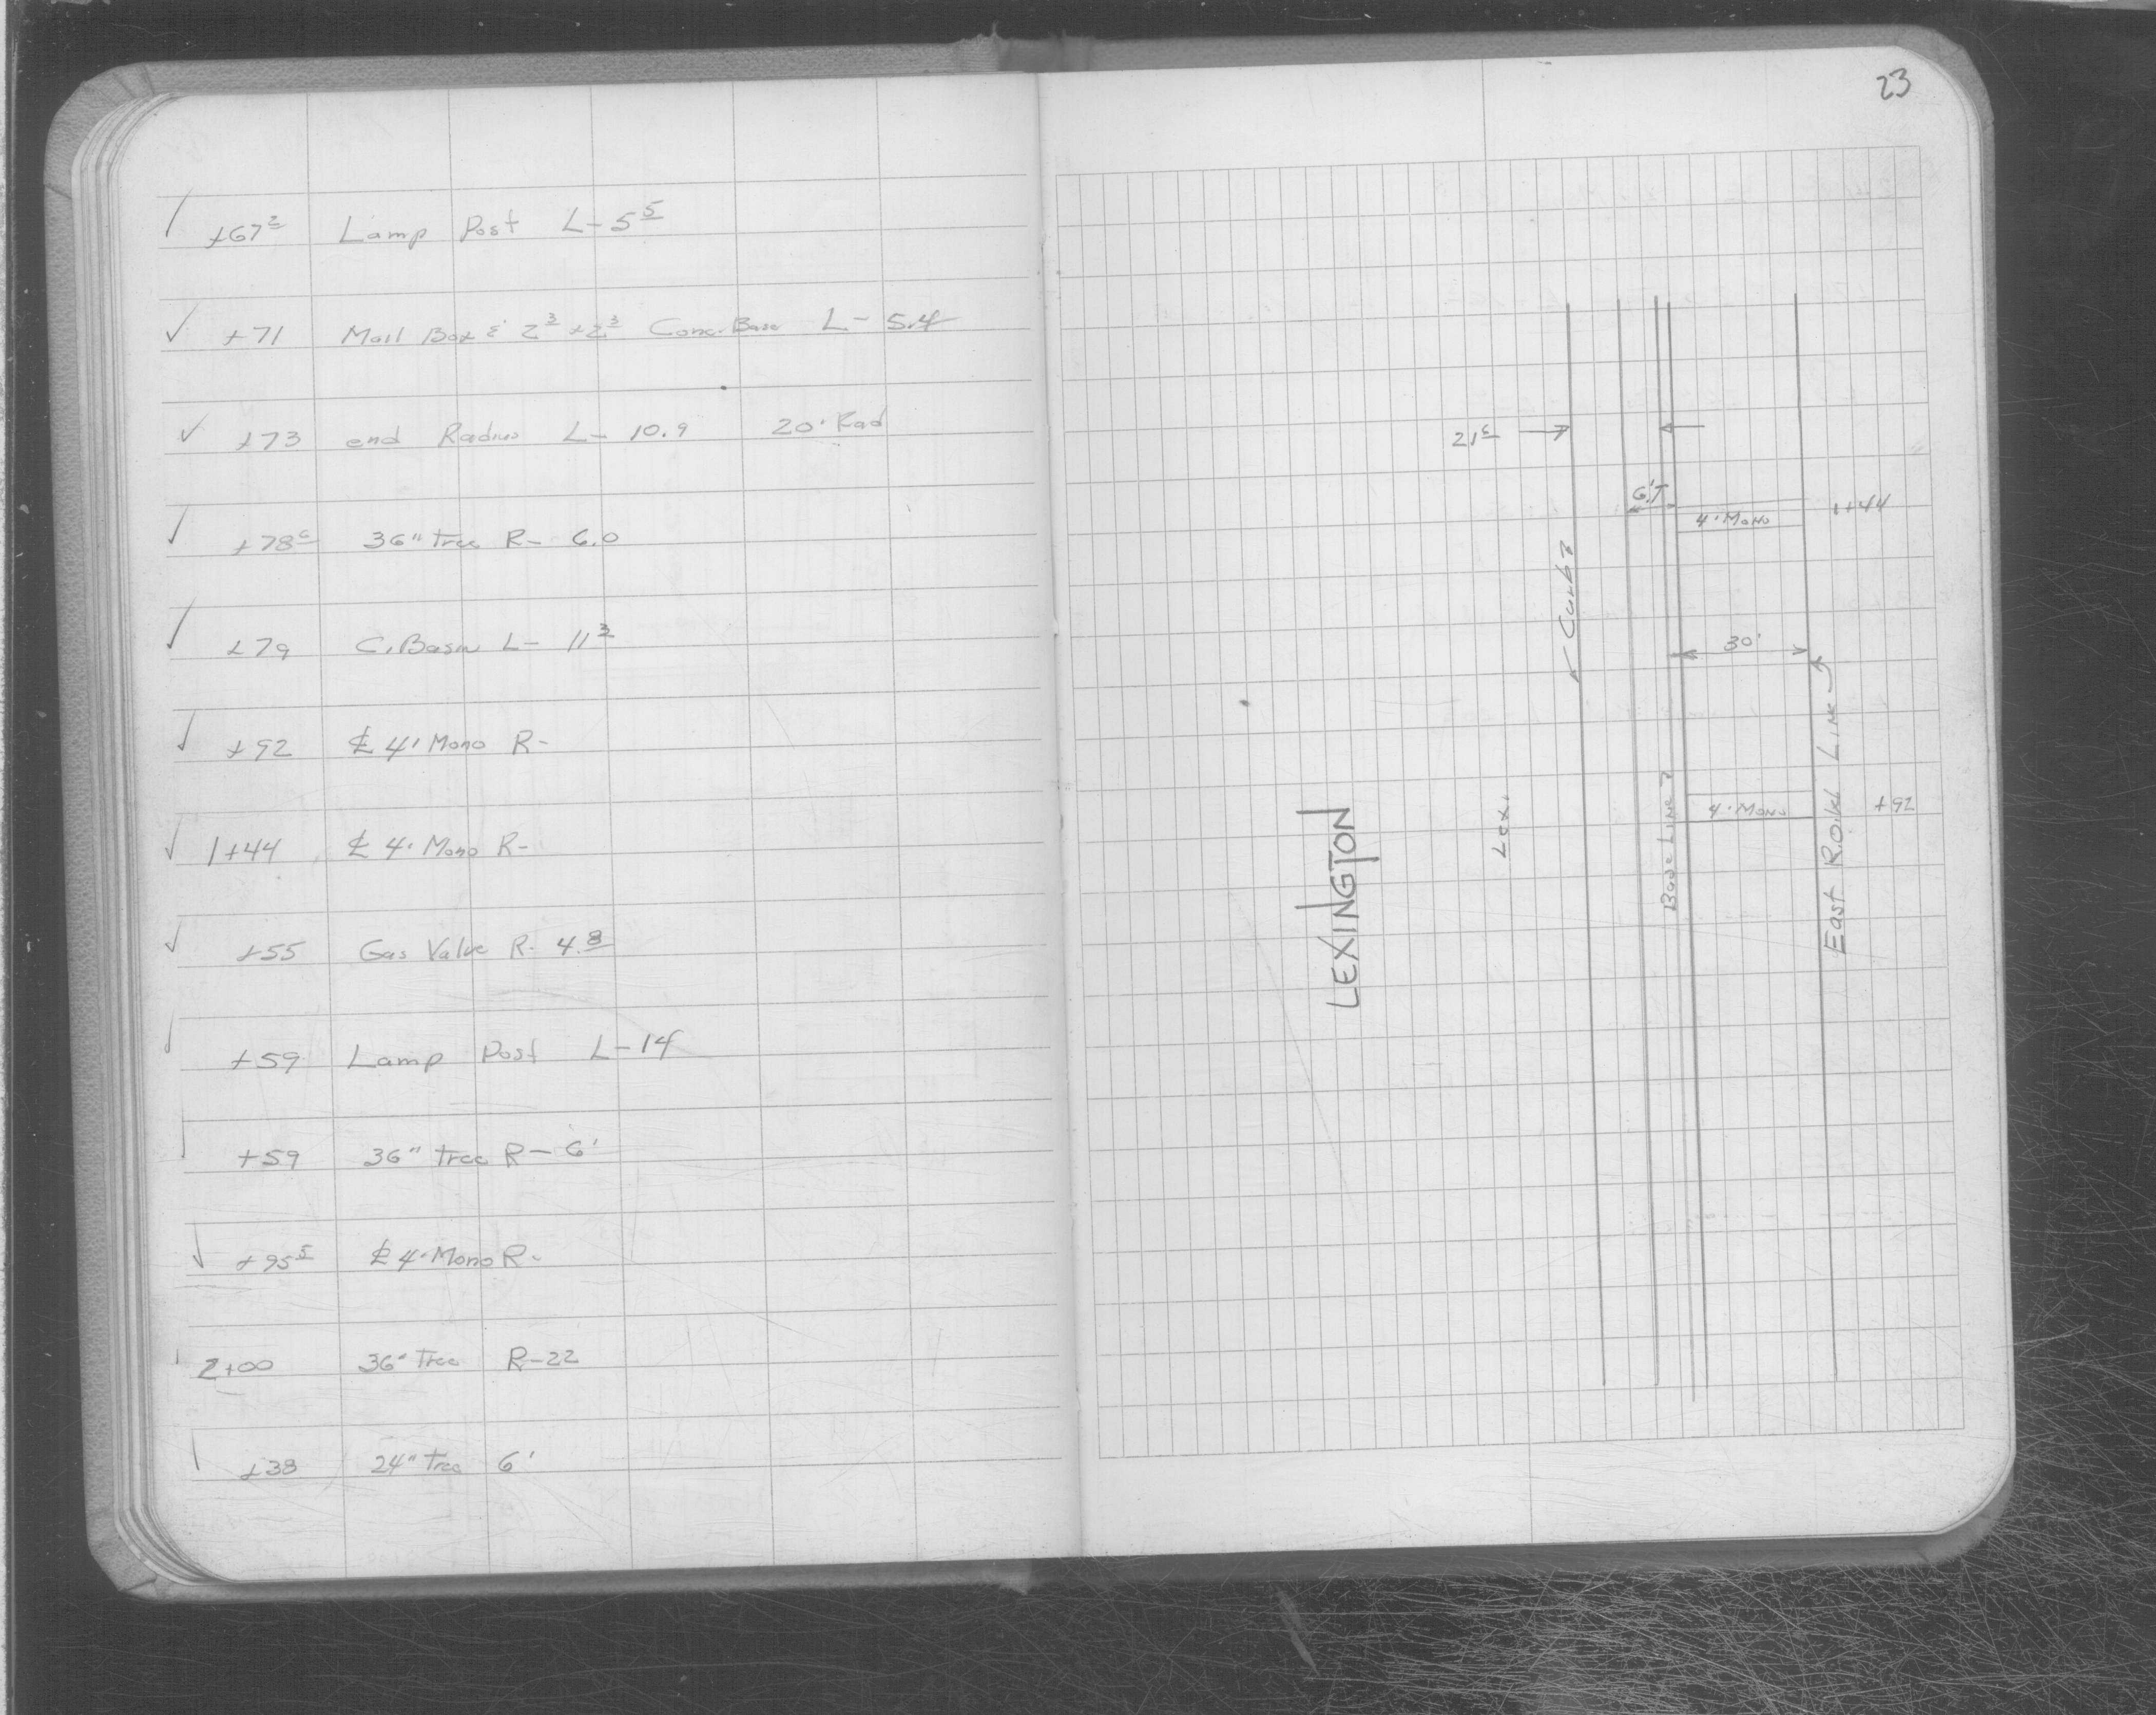 23
+67² Lamp Post L-5⁵
+71 Mail Box & 2³ x 2³ Conc. Base L- 5.4
+73 end Radius L- 10.9 20' Rad
+78⁶ 36" tree R- 6.0
+79 C. Basin L- 11³
+92 ℄ 4' Mono R-
1+44 ℄ 4' Mono R-
+55 Gas Valve R- 4.8
+59 Lamp Post L-14
+59 36" tree R- 6'
+95⁵ ℄ 4' Mono R-
2+00 36" Tree R-22
+38 24" Tree 6'
21⁶
6'
4' Mono
1+44
Curb
30'
4' Mono
+92
Base Line
East R.O.W. Line
Lex.
LEXINGTON